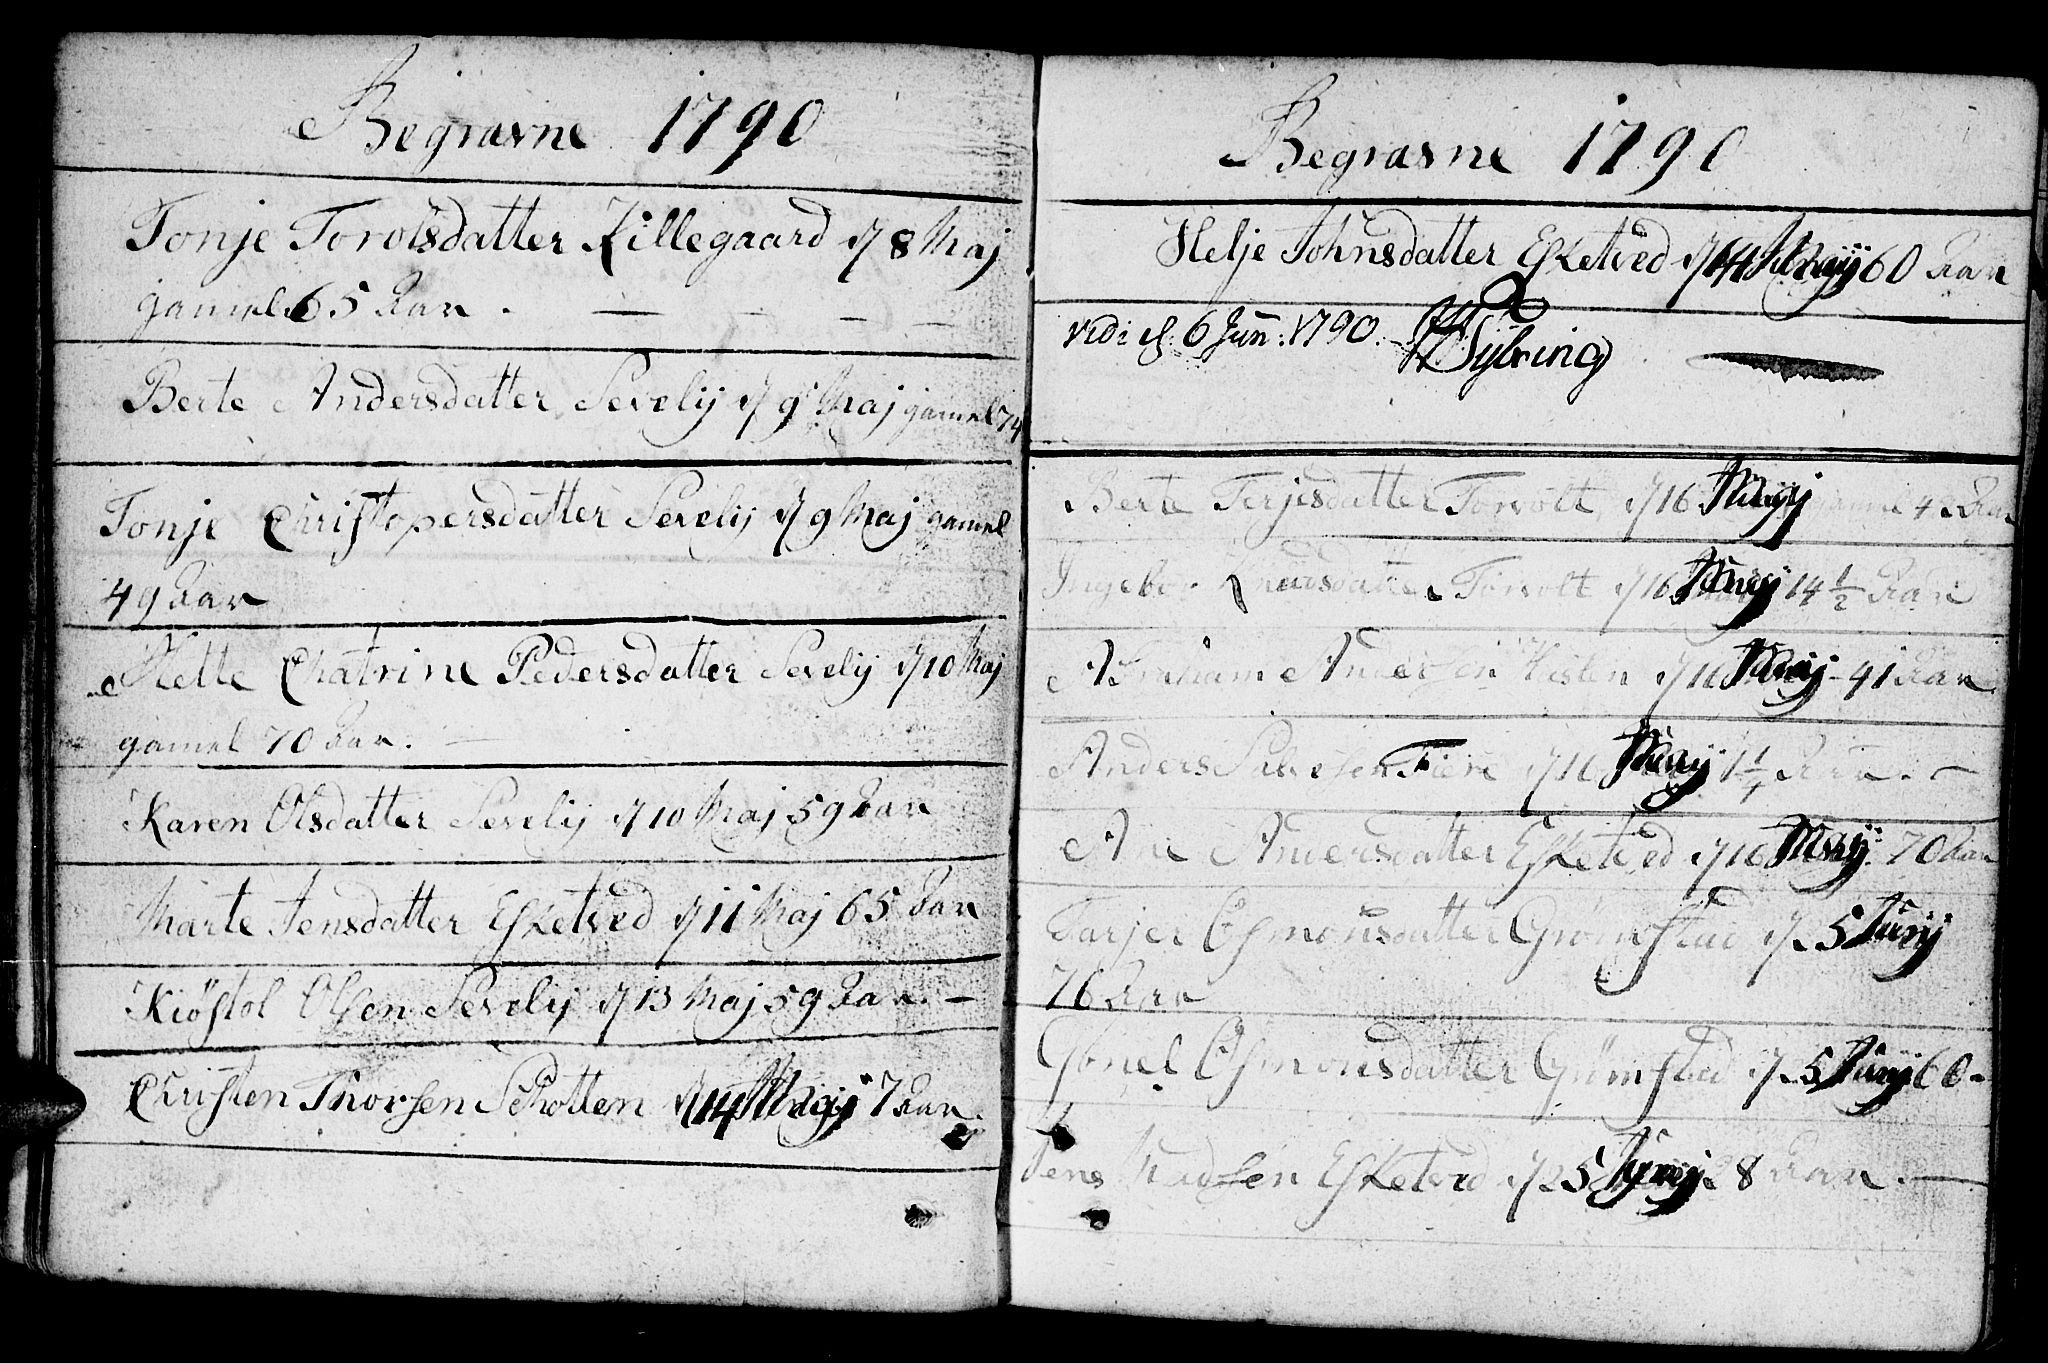 Begravne 1790
Tonje Torolsdatter Lillegaard d 8 Maj
gamel 65 Aar. — — — —
Berte Andersdatter Sevelij d 9 Maj gamel 74
Tonje Christopersdatter Sevelij d 9 Maj gamel
49 Aar
Mette Chatrine Pedersdatter Sevelij d 10 Maj
gamel 70 Aar. —
Karen Olsdatter Sevelij d 10 Maj 59 Aar
Marte Jensdatter Esketved d 11 Maj 65 Aar
Kiöstol Olsen Sevelij d 13 Maj 59 Aar. —
Christen Thorsen Schotten d 14 7 Aar.
Begravne 1790
Helje Johnsdatter Esketved d 14 60 Aar
vidi d. 6 Jun: 1790.
Berte Terjesdatter Torvolt d 16 gamel Aar
Ingebor Torvolt d 16 14 1/2 Aar
Abraham Andersen d 16 41 Aar
Anders d 16 Aar. —
Ane Andersdatter Esketved d 16 70 Aar
Tarjer Osmonsdatter Gromstad d. 5 Junij
76 Aar
Gonel Osmonsdatter Grimstad d. 5 Junij 60.
Jens Esketved d 25 8 Aar. —